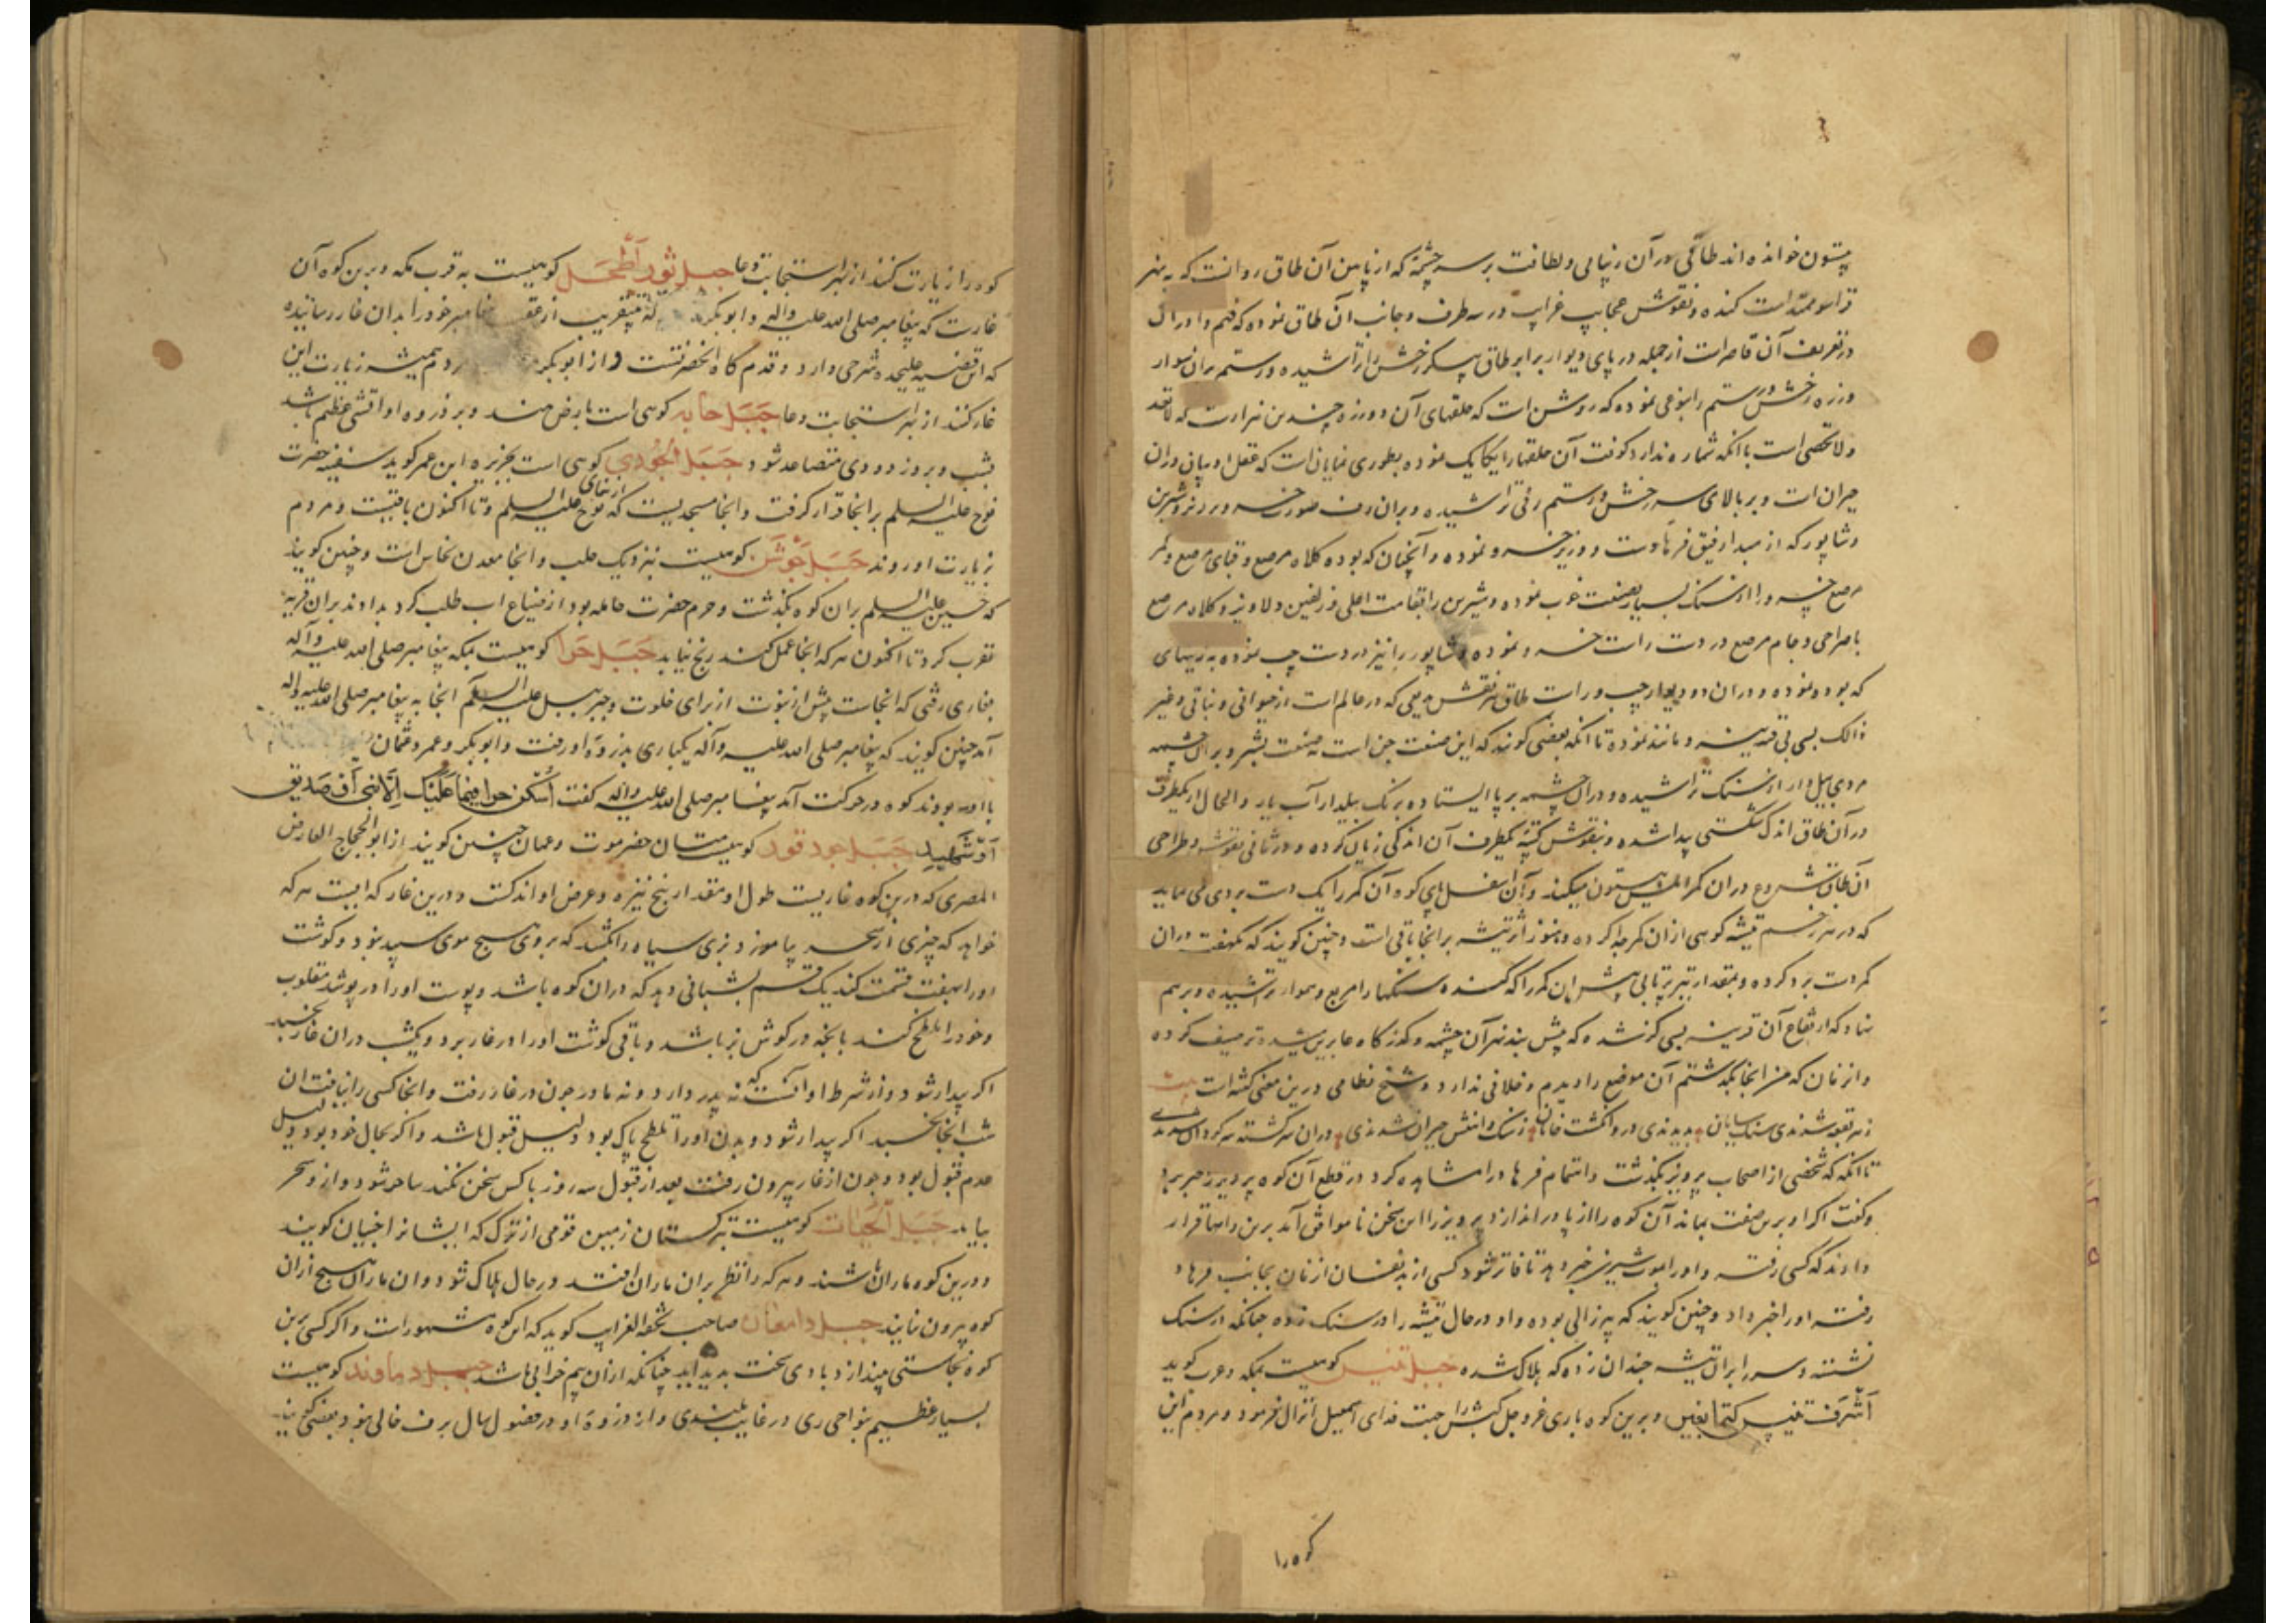 بیستون خوانده اند طاقی در آن زیبایی و لطافت بر سر چشمهٔ که از پایین آن طاق روانست که به نهر
است کنده و نقوش عجایب غرایب در سه طرف و جانب آن طاق نموده که فهم و ادراک
در تعریف آن قاصر است از جمله در پای دیوار برابر طاق پیکر رخش را تراشیده و رستم بران سوار
و زره رخش و رستم را بنوعی نموده که روشن است که حلقهای آن دو زره چندین هزارست که لاتعد
ولا تحصی است با آنکه شماره ندارد کوفت آن حلقها را یکایک نموده بطوری نمایان است که عقل
حیران است و بر بالای سر رخش و رستم رفی تراشیده و بران رف صورت خسرو و شیرین
و شاپور که از رفیق فرهادست و وزیر خسرو نموده و آنچنان که بوده کلاه مرصع و قبای مرصع و کمر
مرصع خسرو را از سنگ بسیار بصنعت خوب نموده و شیرین را بقامت اعلی و زلفین دلاویز و کلاه مرصع
با صراحی و جام مرصع در دست راست خسرو نموده و شاپور را نیز در دست چپ نموده به زیبهای
که بوده نموده و دران دو دیوار چپ و راست طاق هر نقش بدیعی که در عالم است از حیوانی و نباتی و غیر
ذالک بسی بی قرینه و مانند نموده تا آنکه بعضی گویند که این صنعت جن است نه صنعت بشر و بر آن چشمه
مردی بیل دار از سنگ تراشیده و در آن چشمه بر پا ایستاده برنگ بیلدار آب یار و الحال از یکطرف
در آن طاق اندک شکستی پیدا شده و بنقوش کتبهٔ یکطرف آن اندکی زیان کرده و در ثانی نقوش و طراحی
آن طاق شروع در آن کمر بیستون میکند و از اسفل پای کوه آن کمر را یک دست بردی می نماید
که در هر زخم تیشه کوهی از آن کمر جدا کرده و هنوز اثر تیشه بر آنجا باقی است و چنین گویند که
کمر دست برد کرده و بمقدار تیر پرتابی پیش آن کمر را کنده سنگها را مربع و هموار تراشیده و بر هم
نهاد که ارتفاع آن قرینه بسی گز شده که پیش بند نهر آن چشمه و گذرگاه عابرین شده توصیف کرده
و از زمان که من آنجا بگذشتم آن موضع را دیدم و خلافی ندارد و شیخ نظامی در این معنی گفته است بیت
شدندی سنگ سایان بدیدندی در و انگشت خایان زسنگ و آهنش حیران شدندی دران سرگشته سرگردان شدندی
تا آنکه که شخصی از اصحاب پرویز بگذشت و اتمام فرهاد را مشاهده کرد در قطع آن کوه پرویز را خبر برد
و گفت اگر او برین صفت بماند آن کوه را از پا در اندازد پرویز را این سخن ناموافق آمد برین رایها قرار
دادند که کسی رفته و او را بموت شیرین خبر دهد تا فاتر شود کسی از بدنفسان از زنان بجانب فرهاد
رفته او را خبر داد و چنین گویند که پیر زالی بوده و او در حال تیشه را در سنگ زده چنانکه در سنگ
نشسته و سر را بر آن تیشه چندان زده که هلاک شده جبل ثبیر کوهیست بمکه و عرب گوید
اشرق ثبیر کیما نغیر و برین کوه باری عز و جل کبش را جهت فدای اسمعیل انزال فرمود و مردم این
کوه را
کوه را زیارت کنند از بهر استجابت دعا جبل ثور اطحل کوهیست به قرب مکه و برین کوه آن
غارست که پیغامبر صلی الله علیه وآله و ابوبکر خود را بدان غار رسانیده
که این قضیه علیحده شرحی دارد و قدم گاه آنحضرتست و از ابوبکر مردم همیشه زیارت این
غار کنند از بهر استجابت دعا جبل جابه کوهی است بارض هند و بر ذروه او آتشی عظیم باشد
بشب و بروز دودی متصاعد شود جبل الجودی کوهی است بجزیره ابن عمر گوید سفینه حضرت
نوح علیه السلام بر آنجا قرار گرفت و آنجا مسجدیست که از بنای نوح علیه السلام و تا اکنون باقیست و مردم
بزیارت او روند جبل جوشن کوهیست نزدیک حلب و آنجا معدن نحاس است و چنین گویند
که حسین علیه السلم بران کوه بگذشت و حرم حضرت حامله بود از ضیاع آب طلب کرد ندادند بران قریه
نفرین کرد تا اکنون هر که آنجا عمل کند ربح نیابد جبل حرا کوهیست بمکه پیغامبر صلی الله علیه وآله
بغاری رفتی که آنجاست پیش از نبوت از برای خلوت و جبرئیل علیه السلام آنجا به پیغامبر صلی الله علیه واله
آمد چنین گویند که پیغامبر صلی الله علیه وآله یکباری بذروهٔ او رفت و ابوبکر و عمر و عثمان
با او بودند کوه در حرکت آمد پیغامبر صلی الله علیه واله گفت اسکن حرا فما علیک الا نبی او صدیق
او شهید جبل عود قور کوهیست میان حضرموت و عمان چنین گویند از ابوالحجاج العارض
المصری که درین کوه غاریست طول او مقدار پنج نیزه و عرض او اندکست و درین غار که آبیست هر که
خواهد که چیزی از سحر بیاموزد بزی سیاه را بکشد که بروی هیچ موی سپید نبود و گوشت
او را بهفت قسمت کند یک قسم بشبانی دهد که دران کوه باشد و پوست او را در پوشد مقلوب
و خود را ملطخ کند بآنچه در کرش بز باشد و باقی گوشت او را در غار برد و یکشب دران غار بخسبد
اگر بیدار شود و از شرط او آنست که نه پدر دارد و نه مادر چون در غار رفت و آنجا کسی را نیافت آن
شب آنجا بخسبد اگر بیدار شود و بدن او را از تلطخ پاک بود دلیل قبول باشد و اگر بحال خود بود دلیل
عدم قبول بود و چون از غار بیرون رفت بعد از قبول سه روز با کس سخن نکند ساحر شود و از او سحر
بیاید جبل الحیات کوهیست بترکستان زمین قومی از ترک که ایشانرا اخیان گویند
و درین کوه ماران باشند و هر که را نظر بران ماران افتد در حال هلاک شود و آن ماران هیچ از آن
کوه بیرون نیایند جبل دامغان صاحب تحفه الغرایب گوید که این کوه مشهورست و اگر کسی برین
کوه نجاستی بیندازد بادی سخت پدید آید چنانکه از آن بیم خرابی باشد جبل دماوند کوهیست
بسیار عظیم بنواحی ری در غایت بلندی و از ذروه او در فصول سال برف خالی نبود بعضی گویند